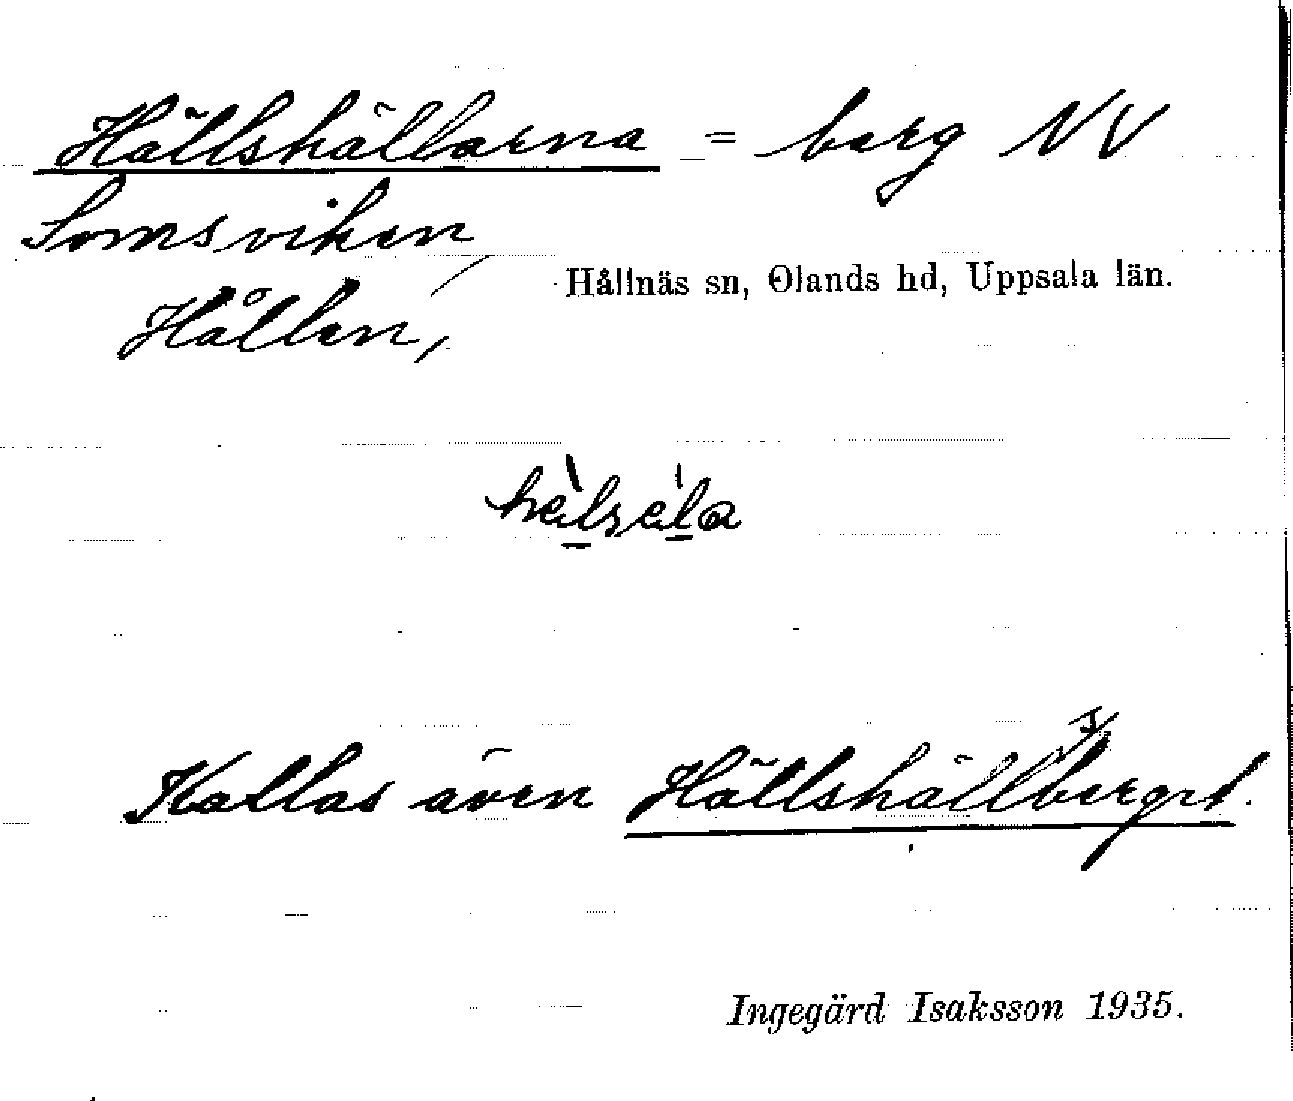 Hällshällarna = berg NV
Somsviken,
Hållnäs sn, Olands hd, Uppsala län.
Hållen,
Kallas även Hällshällsberget.
Ingegärd Isaksson 1935.